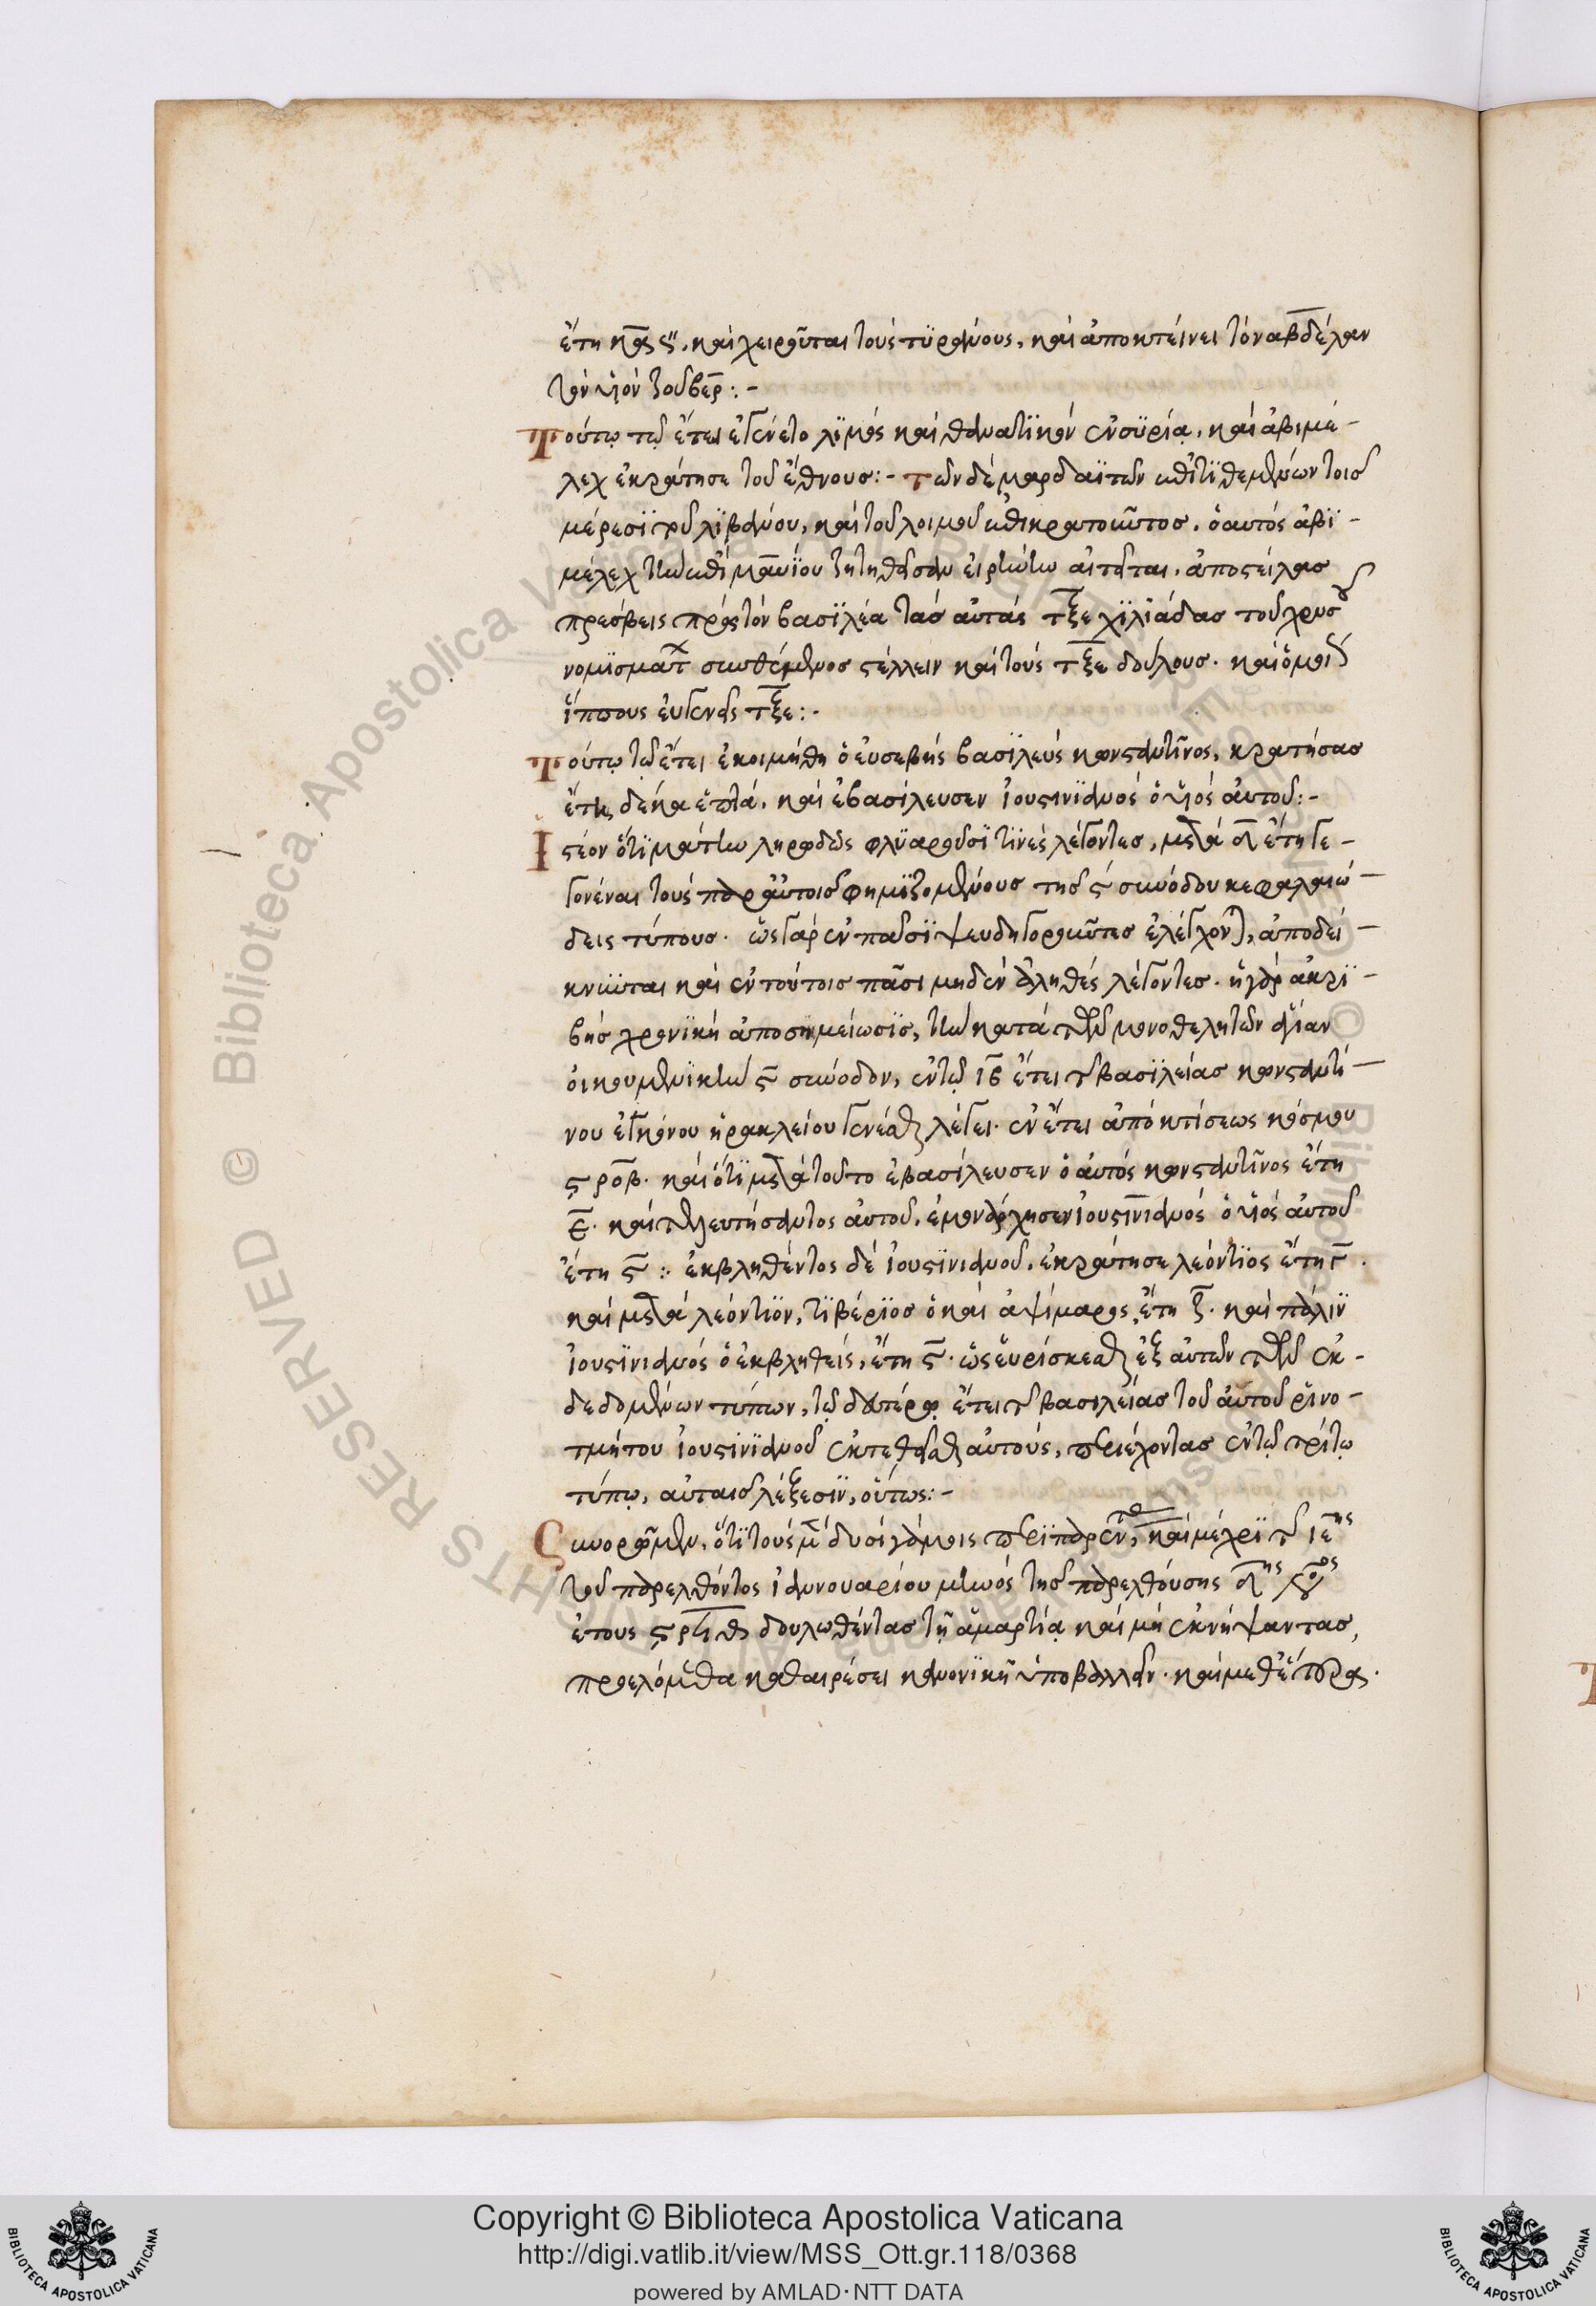 ἔτη κβ ϛʺ, καὶ χειροῦται τοὺς τυράννους, καὶ ἀποκτείνει τὸν αβδέλαν
τὸν υἱὸν ζουβερ:-
Τούτῳ τῷ ἔτει ἐγένετο λϊμὸς καὶ θανατϊκὸν ἐν συρίᾳ, καὶ ἀβιμέ-
λεχ ἐκράτησε τοῦ ἔθνους:- τῶν δὲ μαρδαϊτῶν ἐπιτϊθεμένων τοῖς
μέρεσϊ τοῦ λϊβάνου, καὶ τοῦ λοιμοῦ ἐπικρατοῦντος, ὁ αὐτὸς ἀβϊ-
μέλεχ τὴν ἐπὶ μαυΐου ζητηθεῖσαν εἰρήνην αἰτεῖται, ἀποστείλας
πρέσβεις πρὸς τὸν βασϊλέα τὰς αὐτὰς τξε χϊλιάδας τοῦ χρυσοῦ
νομϊσματ συνθέμενος στέλλειν καὶ τοὺς τξε δούλους. καὶ ὁμοί
ἵππους εὐγενεῖς τξε:-
Τούτῳ τῷ ἔτει ἐκοιμήθη ὁ εὐσεβὴς βασϊλεὺς κωνσταντῖνος, κρατήσας
ἔτη δεκαεπτά. καὶ ἐβασίλευσεν ἰουστινϊανὸς ὁ υἱὸς αὐτοῦ:-
Ἰστέον ὅτϊ μάτην ληρωδῶς φλϋαροῦσϊ τϊνὲς λέγοντες, μετὰ δ ἔτη γε-
γονέναι τοὺς παρ αὐτοῖς φημϊζομένους τῆς ϛ συνόδου κεφαλαιώ-
δεις τύπους. ὡς γὰρ ἐν πᾶσϊ ψευδηγοροῦντες ἐλέγχονται, ἀποδεί-
κνϋνται καὶ ἐν τούτοις πᾶσι μηδὲν ἀληθὲς λέγοντες. ἡ γὰρ ἀκρϊ-
βὴς χρονϊκὴ ἀποσημείωσϊς, τὴν κατὰ τῶν μονοθελητῶν ἁγίαν
οἰκουμενϊκὴν ϛ σύνοδον, ἐν τῷ ιβ ἔτει τῆς βασϊλείας κωνσταντί-
νου ἐγγόνου ἡρακλείου γενέσθαι λέγει. ἐν ἔτει ἀπὸ κτίσεως κόσμου
ϛροβ. καὶ ὅτϊ μετὰ τοῦτο ἐβασίλευσεν ὁ αὐτὸς κωνσταντῖνος ἔτη
ε. καὶ τελευτήσαντος αὐτοῦ, ἐμονάρχησεν ἰουστινιανὸς ὁ υἱὸς αὐτοῦ
ἔτη ϛ:· ἐκβληθέντος δὲ ἰουστϊνιανοῦ, ἐκράτησε λεόντϊος ἔτη γ.
καὶ μετὰ λεόντϊον, τϊβέρϊος ὁ καὶ ἀψίμαρος, ἔτη ζ. καὶ πάλϊν
ἰουστϊνιανὸς ὁ ἐκβληθείς, ἔτη ϛ. ὡς εὑρίσκεσθαι ἐξ αὐτῶν τῶν ἐκ-
δεδομένων τύπων, τῷ δευτέρῳ ἔτει τῆς βασιλείας τοῦ αὐτοῦ ῥϊνο-
τμήτου ἰουστϊνϊανοῦ ἐκτεθεῖσθαι αὐτούς, περιέχοντας ἐν τῷ τρίτῳ
τύπῳ, αὐταῖς λέξεσϊν, οὕτως:-
Συνορῶμεν, ὅτϊ τοὺς μ δυσὶ γάμοις περϊπαρέντ, καὶ μέχρϊ τῆς ιεης
τοῦ παρελθόντος ἰαννουαρίου μηνὸς τῆς παρελθούσης δης
ἔτους ϛρϟθ δουλωθέντας τῇ ἁμαρτίᾳ καὶ μὴ ἐκνήψαντας,
προελόμεθα καθαιρέσει κανονϊκῇ ὑποβάλλειν. καὶ μεθ ἕτερα.
Copyright © Biblioteca Apostolica Vaticana
http://digi.vatlib.it/view/MSS_Ott.gr.118/0368
powered by AMLAD·NTT DATA